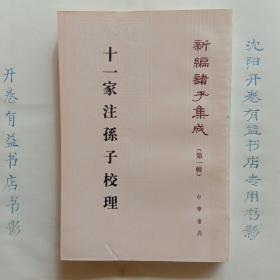 新編諸子集成
（第一輯）
十一家注孫子校理
中華書局
沈阳开卷有益书店专用书影
开卷有益书店书影